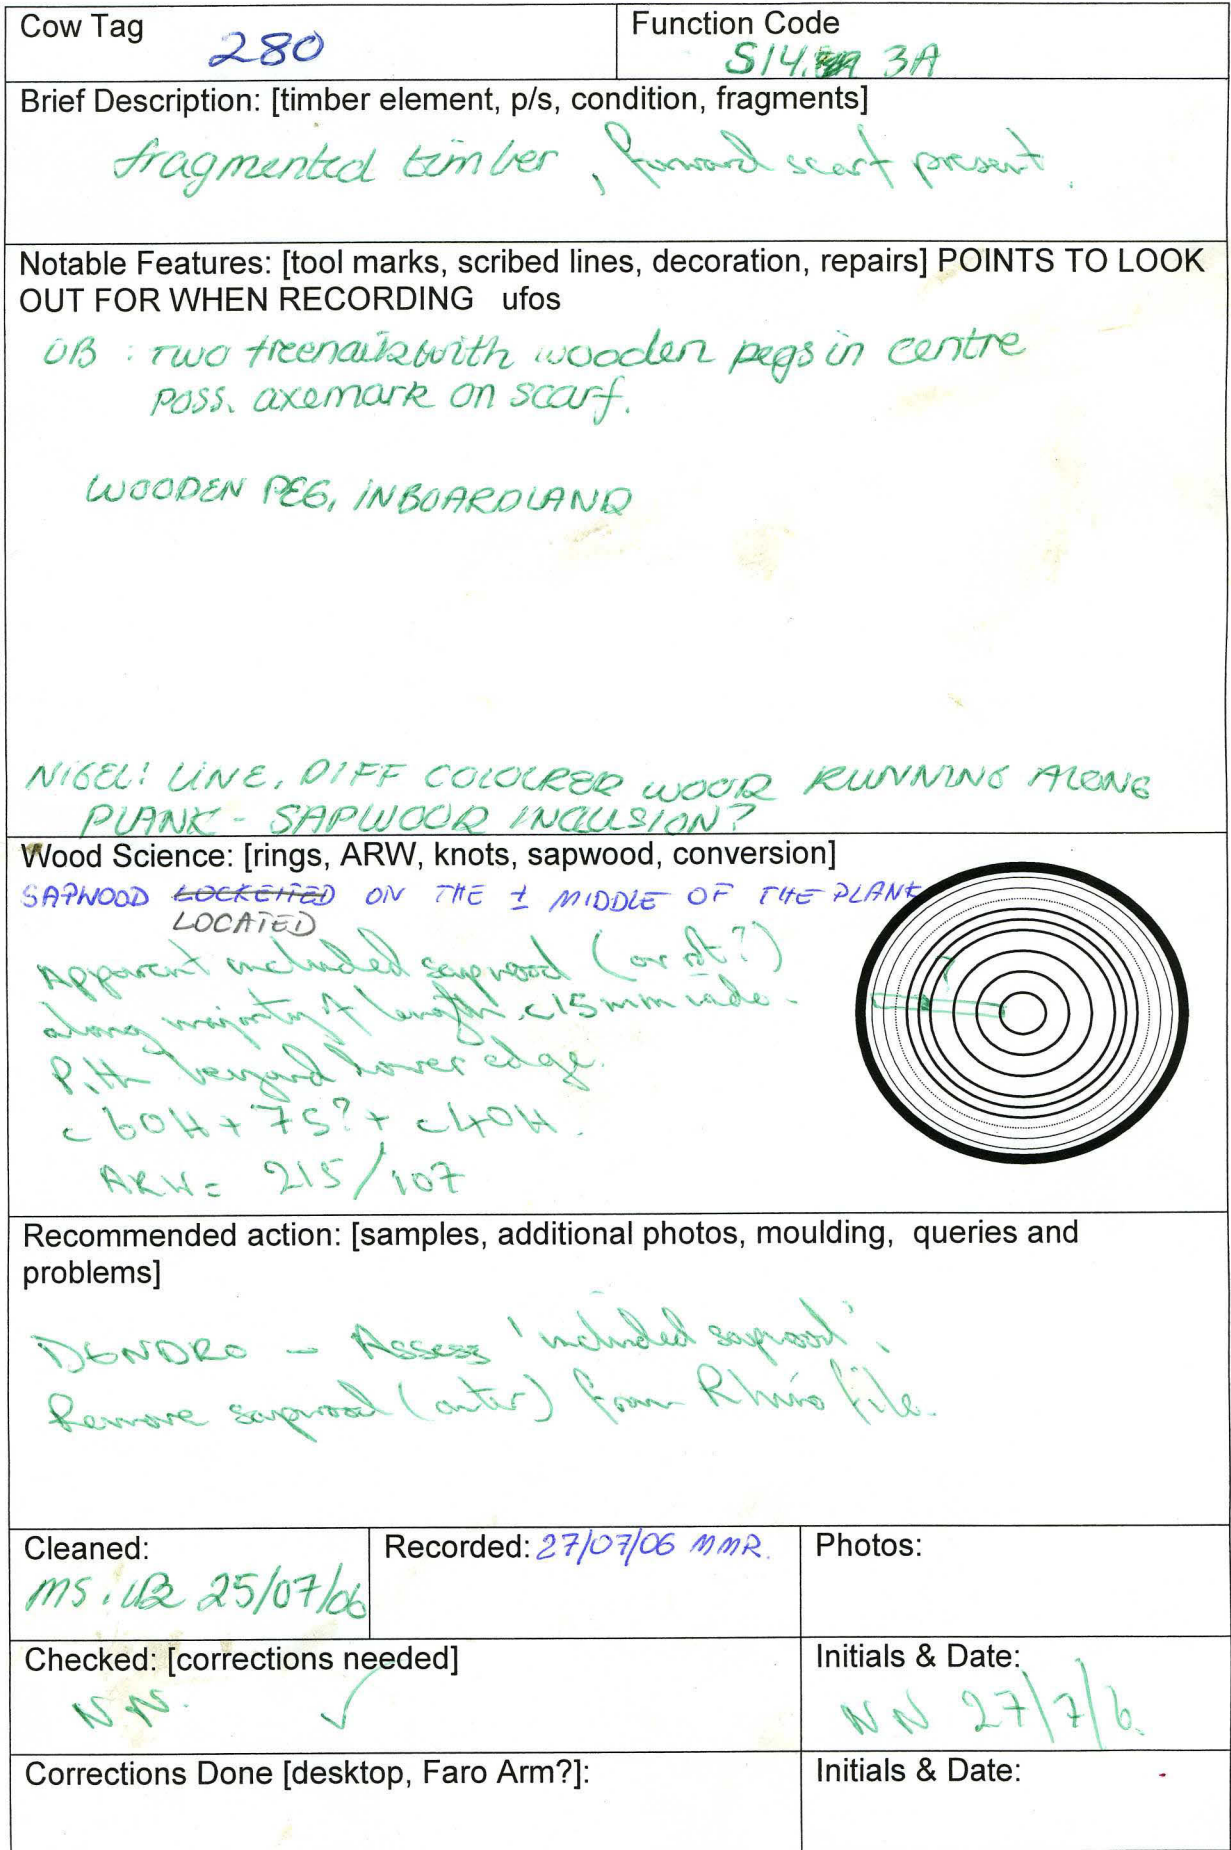 Cow Tag
280
Function Code
S14. 3A
Brief Description: [timber element, p/s, condition, fragments]
fragmented timber, forward scarf present.
Notable Features: [tool marks, scribed lines, decoration, repairs] POINTS TO LOOK
OUT FOR WHEN RECORDING ufos
OB : TWO treenails with wooden pegs in centre
poss. axemark on scarf.
WOODEN PEG, INBOARD LAND
NIGEL! LINE, DIFF COLOURED WOOD RUNNING ALONG
PLANK - SAPWOOD INCLUSION?
Wood Science: [rings, ARW, knots, sapwood, conversion]
SAPWOOD LOCKEITED ON THE ± MIDDLE OF THE PLANK
LOCATED
Apparent included sapwood (or rot?)
along majority of length. c15mm wide.
?
Pith beyond lower edge.
c60H + 7S? + c40H.
ARW = 215/107
Recommended action: [samples, additional photos, moulding, queries and
problems]
DENDRO - Assess 'included sapwood'.
Remove sapwood (outer) from Rhino file.
Cleaned:
MS. 25/07/06
Recorded: 27/07/06 MMR.
Photos:
Checked: [corrections needed]
NN. ✓
Initials & Date:
NN 27/7/6.
Corrections Done [desktop, Faro Arm?]:
Initials & Date: